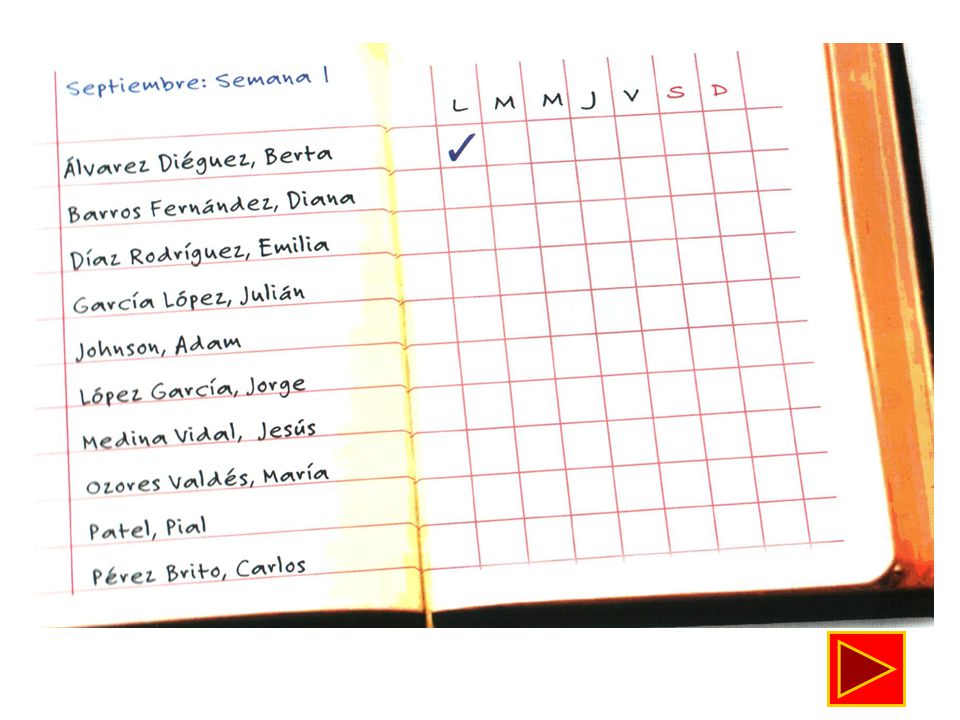 Septiembre: Semana 1
L M M J V S D
Álvarez Diéguez, Berta ✓
Barros Fernández, Diana
Díaz Rodríguez, Emilia
García López, Julián
Johnson, Adam
López García, Jorge
Medina Vidal, Jesús
Ozores Valdés, María
Patel, Pial
Pérez Brito, Carlos